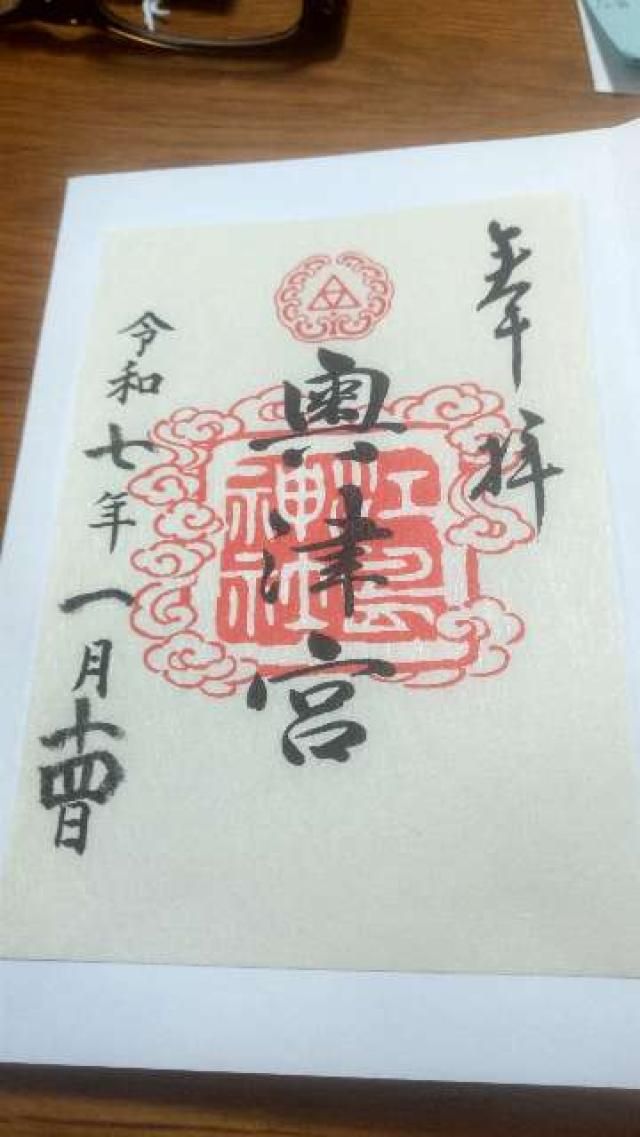 奉拝
奥津宮
江島
神社
令和七年一月十四日